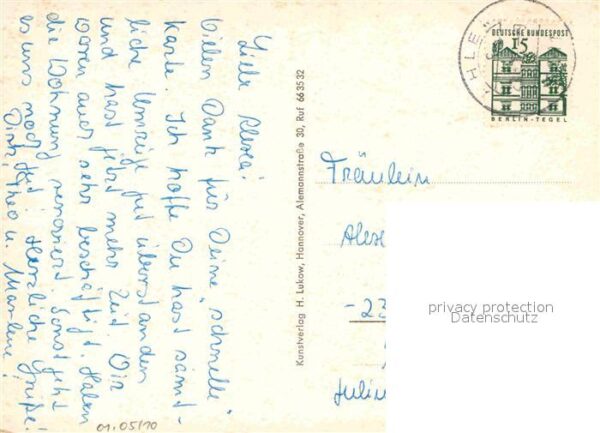 Liebe Alexa!
Vielen Dank für Deine "schnelle"
Karte. Ich hoffe Du hast sämt-
liche Umzüge gut überstanden
und hast jetzt mehr Zeit. Wir
waren auch sehr beschäftigt. Haben
die Wohnung renoviert. Sonst geht
es uns noch gut. Herzliche Grüße!
Theo u. Marlene!
01.05/10
Kunstverlag H. Lukow, Hannover, Alemannstraße 30, Ruf 66 35 32
DEUTSCHE BUNDESPOST
15
BERLIN-TEGEL
HLE
Fräulein
Alex
-23
privacy protection
Datenschutz